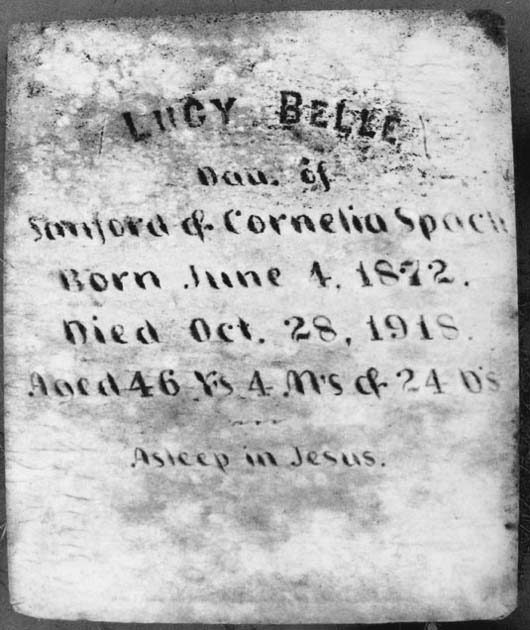 LUCY BELLE
Dau. of
Sanford & Cornelia Spach
Born June 4, 1872.
Died Oct. 28, 1918.
Aged 46 Ys 4 M's & 24 D's
Asleep in Jesus.